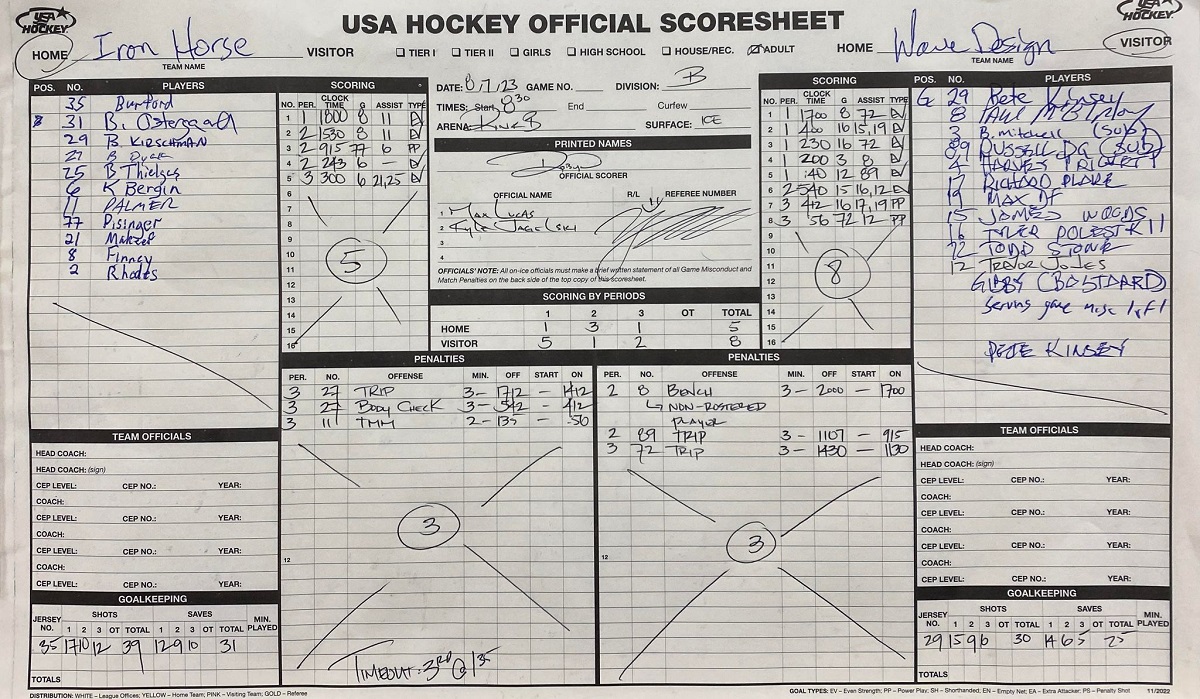 USA HOCKEY
USA HOCKEY OFFICIAL SCORESHEET
USA HOCKEY
HOME Iron Horse VISITOR TIER I TIER II GIRLS HIGH SCHOOL HOUSE/REC. ADULT HOME Wave Design VISITOR
TEAM NAME TEAM NAME
POS. NO. PLAYERS
35 Burford
31 B. Ostergaard
29 B KIRSCHMAN
27 B
25 B Thielges
6 K Bergin
11 PALMER
77 Pisinger
21
8 Finney
2 Rhodes
SCORING
NO. PER. CLOCK TIME G ASSIST TYPE
1 1 1800 8 11 EV
2 2 1530 8 11 EV
3 2 915 77 6 PP
4 2 243 6 — EV
5 3 300 6 21,25 EV
6
7
8
9
10
11
12
13
14
15
16
5
DATE: 8/7/23 GAME NO. DIVISION: B
TIMES: Start 8:30 End Curfew
ARENA: Rink B SURFACE: ICE
PRINTED NAMES
OFFICIAL SCORER
OFFICIAL NAME R/L REFEREE NUMBER
1 Max Lucas
2 Kyle Jagielski
3
4
OFFICIALS' NOTE: All on-ice officials must make a brief written statement of all Game Misconduct and
Match Penalties on the back side of the top copy of this scoresheet.
SCORING BY PERIODS
1 2 3 OT TOTAL
HOME 1 3 1 5
VISITOR 5 1 2 8
SCORING
NO. PER. CLOCK TIME G ASSIST TYPE
1 1 1700 8 72 EV
2 1 400 16 15,19 EV
3 1 230 16 72 EV
4 1 200 3 8 EV
5 1 :40 12 89 EV
6 2 540 15 16,12 EV
7 3 412 16 17,19 PP
8 3 56 72 12 PP
9
10
11
12
13
14
15
16
8
POS. NO. PLAYERS
G 29 Pete Kinsey
8 PAUL
3 B. mitchell (Sub)
89 RUSSELL DG (SUB)
4
17 RICHARD
19 MAX DF
15 JAMES WOODS
16 TYLER
72 TODD STONE
12 TREVOR JONES
GIBBY (BASTARD)
Serving game misc
PETE KINSEY
PENALTIES
PER. NO. OFFENSE MIN. OFF START ON
3 27 TRIP 3— 1712 — 1412
3 27 BODY CHECK 3— 542 — 412
3 11 TMM 2— 135 — :56
12
3
TIMEOUT: 3RD @ 135
PENALTIES
PER. NO. OFFENSE MIN. OFF START ON
2 8 BENCH 3— 2000 — 1700
NON-ROSTERED
PLAYER
2 89 TRIP 3— 1107 — 915
3 72 TRIP 3— 1430 — 1130
12
3
TEAM OFFICIALS
HEAD COACH:
HEAD COACH: (sign)
CEP LEVEL: CEP NO.: YEAR:
COACH:
CEP LEVEL: CEP NO.: YEAR:
COACH:
CEP LEVEL: CEP NO.: YEAR:
COACH:
CEP LEVEL: CEP NO.: YEAR:
GOALKEEPING
JERSEY NO. SHOTS SAVES MIN. PLAYED
1 2 3 OT TOTAL 1 2 3 OT TOTAL
35 17 10 12 39 12 9 10 31
TOTALS
TEAM OFFICIALS
HEAD COACH:
HEAD COACH: (sign)
CEP LEVEL: CEP NO.: YEAR:
COACH:
CEP LEVEL: CEP NO.: YEAR:
COACH:
CEP LEVEL: CEP NO.: YEAR:
COACH:
CEP LEVEL: CEP NO.: YEAR:
GOALKEEPING
JERSEY NO. SHOTS SAVES MIN. PLAYED
1 2 3 OT TOTAL 1 2 3 OT TOTAL
29 15 9 6 30 14 6 5 25
TOTALS
DISTRIBUTION: WHITE – League Offices; YELLOW – Home Team; PINK – Visiting Team; GOLD – Referee
GOAL TYPES: EV – Even Strength; PP – Power Play; SH – Shorthanded; EN – Empty Net; EA – Extra Attacker; PS – Penalty Shot 11/2022